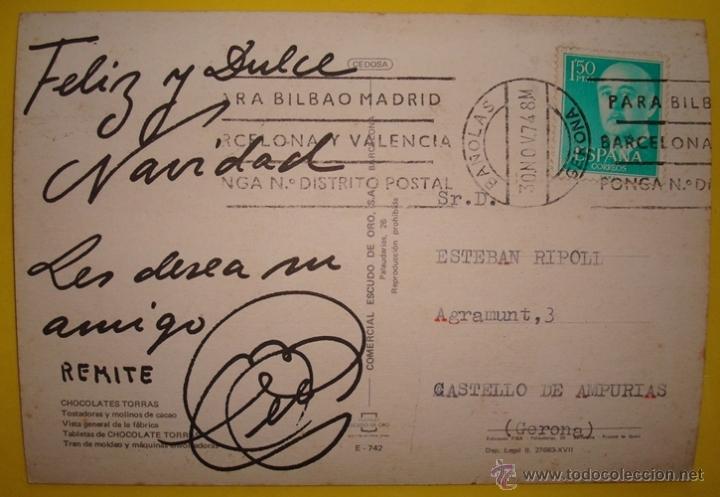 Feliz y Dulce
Navidad
Les desea su
amigo
REMITE
CHOCOLATES TORRAS
Tostadores y molinos de cacao
Vista general de la fábrica
Tabletas de CHOCOLATE TORRAS
Tren de moldeo y máquinas
E - 742
CEDOSA
COMERCIAL ESCUDO DE ORO, S.A. BARCELONA
Palaudarias, 26
Reproducción prohibida
ARA BILBAO MADRID
RCELONA Y VALENCIA
ONGA N.º DISTRITO POSTAL
BAÑOLAS
30 NOV. 74 8M
GERONA
1'50 PTA
ESPAÑA
CORREOS
PARA BILB
BARCELONA
PONGA N.º DI
Sr.D.
ESTEBAN RIPOLL
Agramunt,3
CASTELLO DE AMPURIAS
(Gerona)
Dep. Legal B. 27683-XVII
todocoleccion.net